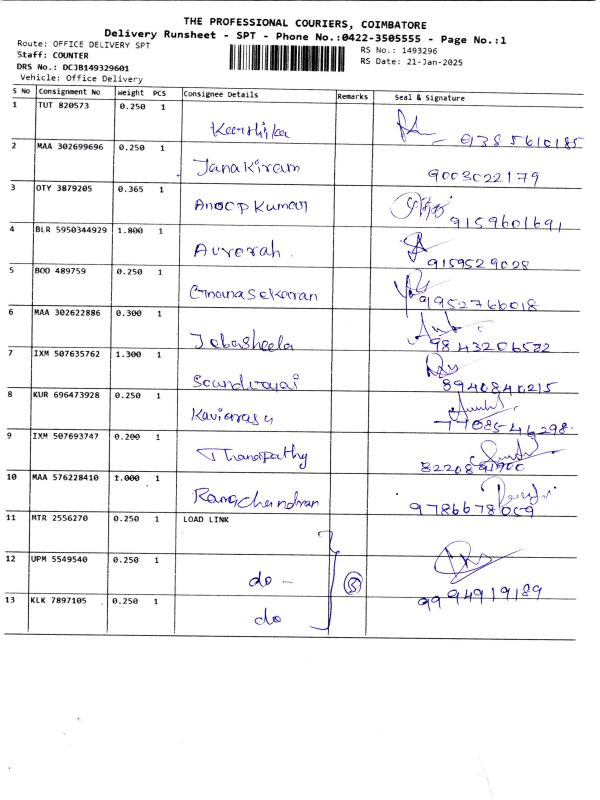 THE PROFESSIONAL COURIERS, COIMBATORE
Delivery Runsheet - SPT - Phone No.:0422-3505555 - Page No.:1
Route: OFFICE DELIVERY SPT
RS No.: 1493296
Staff: COUNTER
RS Date: 21-Jan-2025
DRS No.: DCJB149329601
Vehicle: Office Delivery
S No Consignment No Weight PCS Consignee Details Remarks Seal & Signature
1 TUT 820573 0.250 1
Keerthika 9385610185
2 MAA 302699696 0.250 1
Janakiram 9003022179
3 OTY 3879205 0.365 1
Anoop Kumar 9159601691
4 BLR 5950344929 1.800 1
Aurorah. 9159529028
5 BOD 489759 0.250 1
Gnanasekaran 9952766018
6 MAA 302622886 0.300 1
Jebasheela 9843206582
7 IXM 507635762 1.300 1
Soundurajai 8940840215
8 KUR 696473928 0.250 1
Kaviarasu 7708546298
9 IXM 507693747 0.200 1
Thanapathy 8220891900
10 MAA 576228410 1.000 1
Ramachandran 9786678009
11 MTR 2556270 0.250 1 LOAD LINK
12 UPM 5549540 0.250 1
do - 9994919189
13 KLK 7897105 0.250 1
do